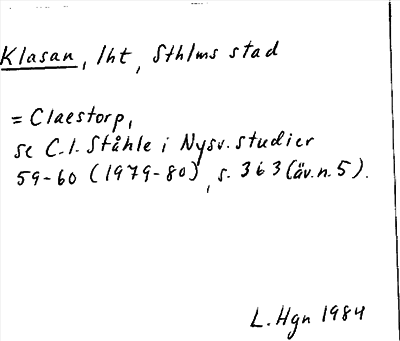 Klasan, lht, Sthlms stad
= Claestorp,
se C.I. Ståhle i Nysv. studier
59-60 (1979-80), s. 363 (äv. n. 5).
L. Hgn 1984